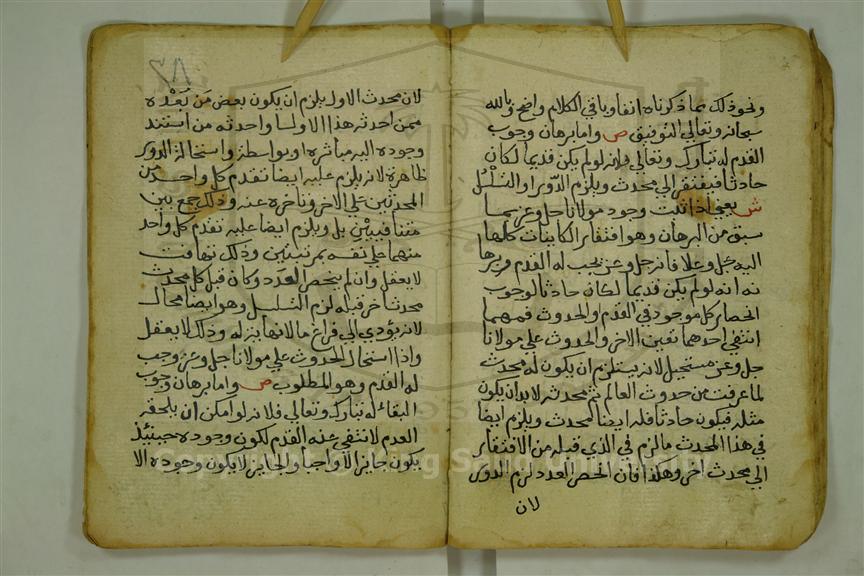 ونحو ذلك بما ذكرناه انفا وباقي الكلام واضح وبالله
سبحانه وتعالي التوفيق ص واما برهان وجوب
القدم له تبارك وتعالي فلانه لو لم يكن قديما لكان
حادثا فيفتقر الي محدث ويلزم الدور او التسلسل
ش يعني اذا ثبت وجود مولانا جل وعز بما
سبق من البرهان وهو افتقار الكاينات كلها
اليه جل وعلا فانه جل وعز يجب له القدم وبرها
نه انه لو لم يكن قديما لكان حادثا لوجوب
انحصار كل موجود في القدم والحدوث فمهما
انتفي احدهما تعين الاخر والحدوث علي مولانا
جل وعز مستحيل لانه يستلزم ان يكون له محدث
لما عرفت من حدوث العالم ثم محدثه لابد ان يكون
مثله فيكون حادثا فله ايضا محدث ويلزم ايضا
في هذا المحدث ما لزم في الذي قبله من الافتقار
الي محدث اخر وهكذا فان انحصر العدد لزم الدور
لان
لان محدث الاول يلزم ان يكون بعض من بعده
ممن احدثه هذا الاول او احدثه من استند
وجوده اليه مباشرة او بواسطة واستحالة الدور
ظاهرة لانه يلزم عليه ايضا تقدم كل واحد من
المحدثين علي الاخر وتاخره عنه وذلك جمع بين
متنافيين بل ويلزم ايضا عليه تقدم كل واحد
منهما علي نفسه بمرتبتين وذلك تهافت
لا يعقل وان لم ينحصر العدد وكان قبل كل محدث
محدثا اخر قبله لزم التسلسل وهو ايضا محال
لانه يؤدي الي فراغ ما لا نهاية له وذلك لا يعقل
واذا استحال الحدوث علي مولانا جل وعز وجب
له القدم وهو المطلوب ص واما برهان وجوب
البقاء له تبارك وتعالي فلانه لو امكن ان يلحقه
العدم لانتفي عنه القدم لكون وجوده حينيذ
يكون جايزا لا واجبا والجايز لا يكون وجوده الا